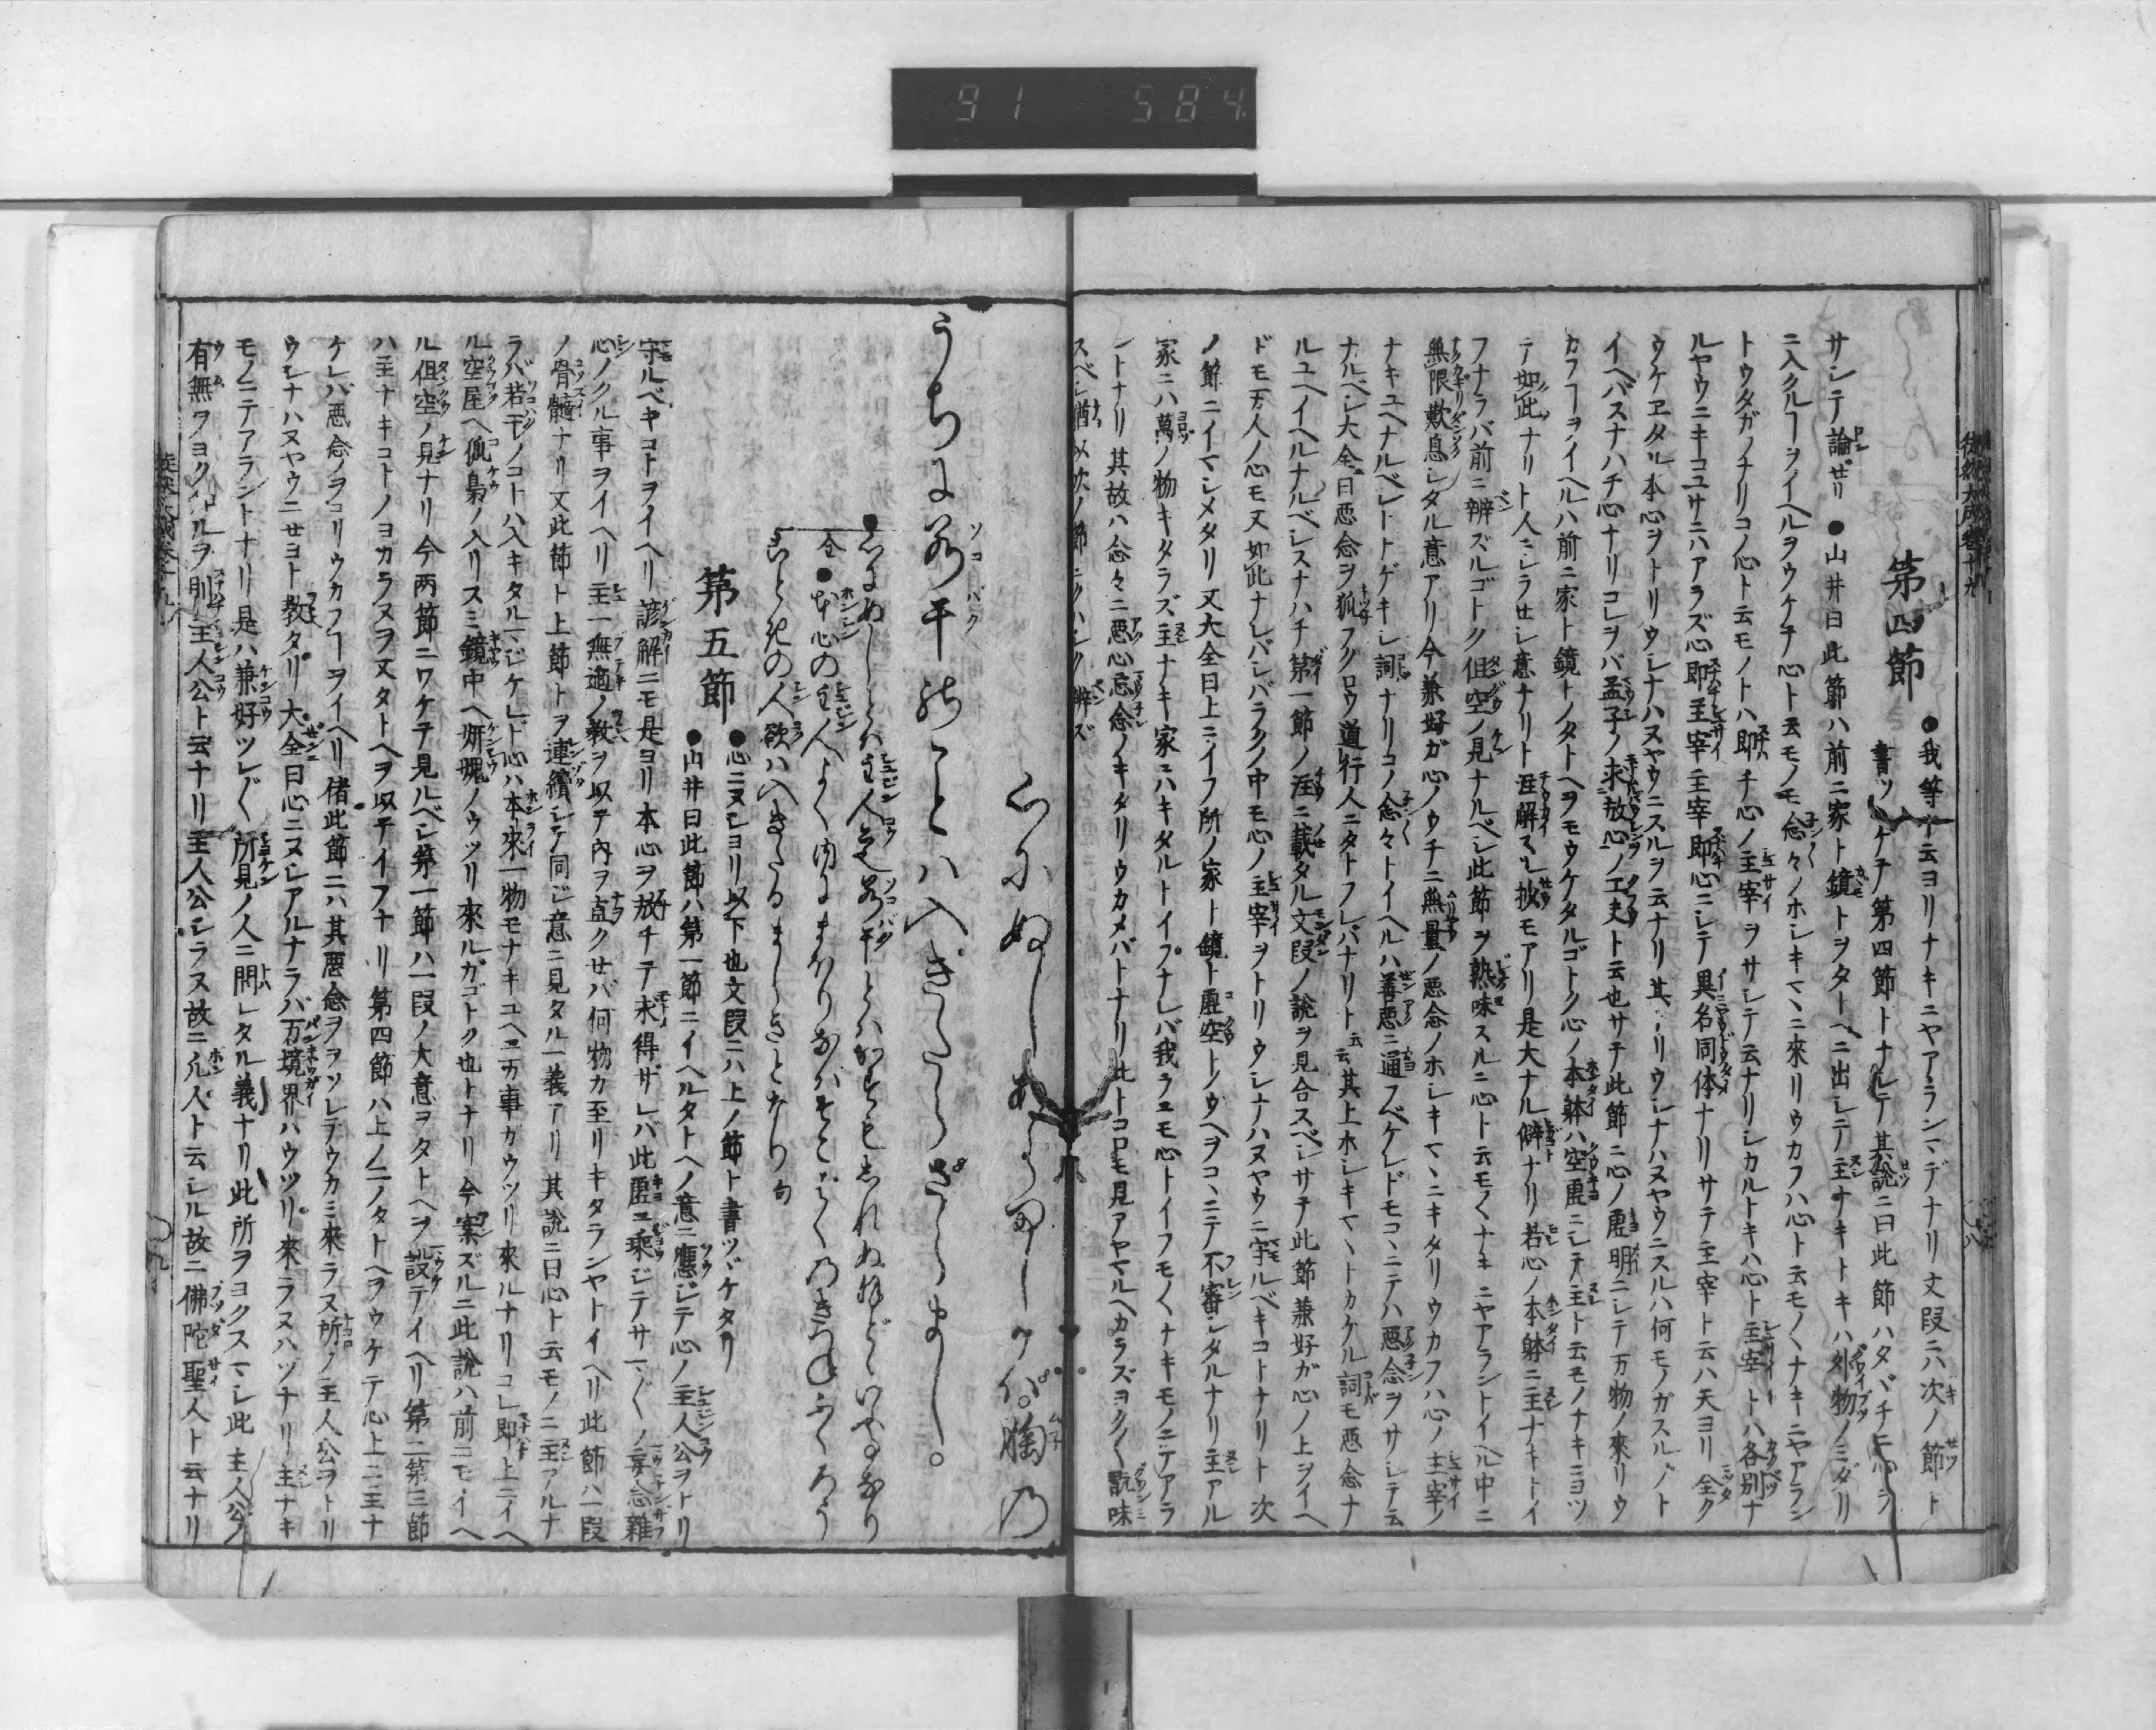 91 584
第四節 ●我等ト云ヨリナキニヤアランマデナリ文段ニハ次ノ節ト
書ツヾケテ第四節トナシテ其説ニ曰此節ハタヾチニ心ヲ
サシテ論せリ ●山井曰此節ハ前ニ家ト鏡トヲタトヘニ出シテ主ナキトキハ外物ノミダリ
ニ入クルヿヲイヘルヲウケテ心ト云モノモ念々ノホシキマヽニ來リウカフハ心ト云モノヽナキニヤアラン
トウタガフナリコノ心ト云モノトハ即チ心ノ主宰ヲサシテ云ナリシカルトキハ心ト主宰トハ各別ナ
ルヤウニキコユサニハアラズ心即主宰主宰即心ニシテ異名同体ナリサテ主宰ト云ハ天ヨリ全ク
ウケヱタル本心ヲトリウシナハヌヤウニスルヲ云ナリ其トリウシナハヌヤウニスルハ何モノガスルゾト
イヘバスナハチ心ナリコレヲバ孟子ノ求放心ノ工夫ト云也サテ此節ニ心ノ虚明ニシテ万物ノ來リウ
カフヿヲイヘルハ前ニ家ト鏡トノタトヘヲモウケタルゴトク心ノ本躰ハ空虚ニシテ主ト云モノナキニヨツ
テ如此ナリト人ニシラせシ意ナリト注解せシ抄モアリ是大ナル僻ナリ若心ノ本躰ニ主ナキトイ
フナラバ前ニ辨ズルゴトク但空ノ見ナルベシ此節ヲ熟味スルニ心ト云モノヽナキニヤアラントイヘル中ニ
無限歎息シタル意アリ今兼好ガ心ノウチニ無量ノ悪念ノホシキマヽニキタリウカフハ心ノ主宰ノ
ナキユヘナルベシトナゲキシ詞ナリコノ念々トイヘルハ善悪ニ通フベケレドモコヽニテハ悪念ヲサシテ云
ナルベシ大全曰悪念ヲ狐フクロウ道行人ニタトフレバナリト云云其上ホシキマヽトカケル詞モ悪念ナ
ルユヘイヘルナルベシスナハチ第一節ノ注ニ載タル文段ノ説ヲ見合スベシサテ此節兼好ガ心ノ上ヲイヘ
ドモ万人ノ心モ又如此ナレバシバラクノ中モ心ノ主宰ヲトリウシナハヌヤウニ守ルベキコトナリト次
ノ節ニイマシメタリ又大全曰上ニイフ所ノ家ト鏡ト虚空トノウヘヲコヽニテ不審シタルナリ主アル
家ニハ萬ノ物キタラズ主ナキ家ニハキタルトイフナレバ我ラニモ心トイフモノヽナキモノニテアラ
ントナリ其故ハ念々ニ悪心忘念ノキタリウカメバトナリ此トコロモ見アヤマルヘカラズヨク〱翫味
スベシ猶以次ノ節ニクハシク辨ズ
心にぬしあらましかば胸の
うちに若干のことは入きたらざらまし。
●心にぬしとは主人公也若干とはかずもしれぬほどゝいふ心なり
全●本心の主人よく内にまもりなばそこばくのきつねふくろう
ごときの人欲は入きたるまじきとなり
第五節 ●心ニヌシヨリ以下也文段ニハ上ノ節ト書ツヾケタリ
●山井曰此節ハ第一節ニイヘルタトヘノ意ニ應ジテ心ノ主人公ヲトリ
守ルベキコトヲイヘリ諺解ニモ是ヨリ本心ヲ放チテ求得ザレバ此虚ニ乘ジテサマ〲ノ妄念雜
心ノクル事ヲイヘリ主一無適ノ教ヲ以テ内ヲ直クせバ何物カ至リキタランヤトイヘリ此節ハ一段
ノ骨髓ナリ文此節ト上節トヲ連續シテ同ジ意ニ見タル一義アリ其説ニ曰心ト云モノニ主アルナ
ラバ若干ノコトハ入キタルマジケレド心ハ本來一物モナキユヘニ万事ガウツリ來ルナリコレ即上ニイヘ
ル空屋ヘ狐梟ノ入リスミ鏡中ヘ妍媸ノウツリ來ルガゴトク也トナリ今案ズルニ此説ハ前ニモイヘ
ル但空ノ見ナリ今両節ニワケテ見ルベシ第一節ハ一段ノ大意ヲタトヘヲ設テイヘリ第二第三節
ハ主ナキコトノヨカラヌヲ又タトヘヲ以テイフナリ第四節ハ上ノ二ノタトヘヲウケテ心上ニ主ナ
ケレバ悪念ノヲコリウカフヿヲイヘリ偖此節ニハ其悪念ヲヲソレテウカミ來ラヌ所ノ主人公ヲトリ
ウシナハヌヤウニせヨト教タリ大全曰心ニヌシアルナラバ万境界ハウツリ來ラヌハヅナリ主ナキ
モノニテアラントナリ是ハ兼好ツレ〲所見ノ人ニ問シタル義ナリ此所ヲヨクスマシ此主人公ノ
有無ヲヨクシルヲ則主人公ト云ナリ主人公シラヌ故ニ凡人ト云シル故ニ佛陀聖人ト云ナリ